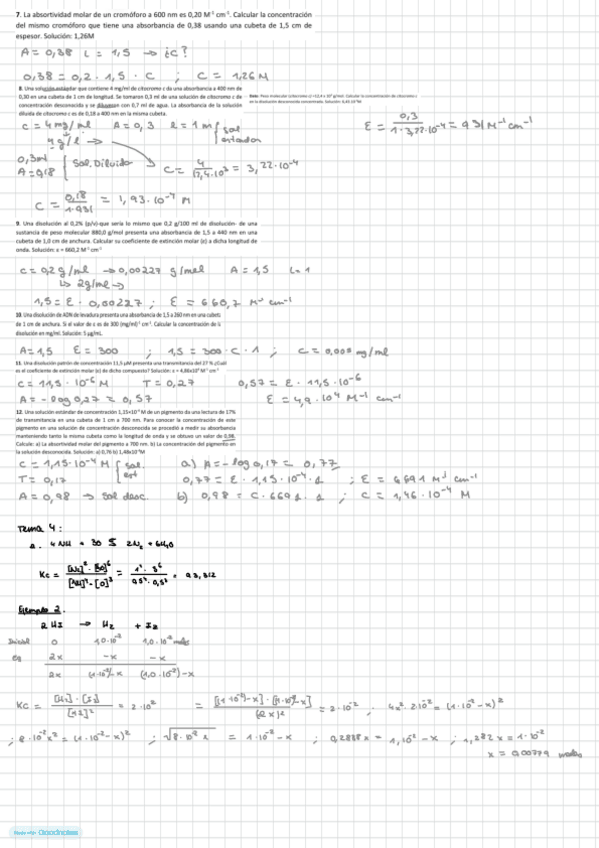 7. La absortividad molar de un cromóforo a 600 nm es 0,20 M⁻¹ cm⁻¹. Calcular la concentración
del mismo cromóforo que tiene una absorbancia de 0,38 usando una cubeta de 1,5 cm de
espesor. Solución: 1,26M
A = 0,38 L = 1,5 → ¿C?
0,38 = 0,2 · 1,5 · C ; C = 1,26 M
8. Una solución estándar que contiene 4 mg/ml de citocromo c da una absorbancia a 400 nm de
0,30 en una cubeta de 1 cm de longitud. Se tomaron 0,3 ml de una solución de citocromo c de
concentración desconocida y se diluyeron con 0,7 ml de agua. La absorbancia de la solución
diluida de citocromo c es de 0,18 a 400 nm en la misma cubeta.
Dato: Peso molecular citocromo c
c = 4 mg/ml A = 0,3 l = 1 m sol estandar
4 g/l →
0,3 ml
A = 0,18 Sol. Diluido
C = 4 / 12,4·10³ = 3,22·10⁻⁴
E = 0,3 / 1·3,22·10⁻⁴ = 931 M⁻¹ cm⁻¹
C = 0,18 / 1·931 = 1,93·10⁻⁴ M
9. Una disolución al 0,2% (p/v)-que sería lo mismo que 0,2 g/100 ml de disolución- de una
sustancia de peso molecular 880,0 g/mol presenta una absorbancia de 1,5 a 440 nm en una
cubeta de 1,0 cm de anchura. Calcular su coeficiente de extinción molar (ε) a dicha longitud de
onda. Solución: ε = 660,2 M⁻¹ cm⁻¹
C = 0,2 g/ml → 0,00227 g/mol A = 1,5 L = 1
↳ 2g/ml →
1,5 = E · 0,00227 ; E = 660,7 M⁻¹ cm⁻¹
10. Una disolución de ADN de levadura presenta una absorbancia de 1,5 a 260 nm en una cubeta
de 1 cm de anchura. Si el valor de ε es de 300 (mg/ml)⁻¹ cm⁻¹. Calcular la concentración de la
disolución en mg/ml. Solución: 5 µg/mL.
A = 1,5 E = 300 ; 1,5 = 300 · C · 1 ; C = 0,005 mg/ml
11. Una disolución patrón de concentración 11,5 µM presenta una transmitancia del 27 % ¿Cuál
es el coeficiente de extinción molar (ε) de dicho compuesto? Solución: ε = 4,86x10⁴ M⁻¹ cm⁻¹
C = 11,5 · 10⁻⁶ M T = 0,27 0,57 = E · 11,5·10⁻⁶
A = -log 0,27 = 0,57 E = 4,9·10⁴ M⁻¹ cm⁻¹
12. Una solución estándar de concentración 1,15×10⁻⁴ M de un pigmento da una lectura de 17%
de transmitancia en una cubeta de 1 cm a 700 nm. Para conocer la concentración de este
pigmento en una solución de concentración desconocida se procedió a medir su absorbancia
manteniendo tanto la misma cubeta como la longitud de onda y se obtuvo un valor de 0,98.
Calcule: a) La absortividad molar del pigmento a 700 nm. b) La concentración del pigmento en
la solución desconocida.
C = 1,15·10⁻⁴ M sol. est
T = 0,17
A = 0,98 → sol desc.
a) A = -log 0,17 = 0,77
0,77 = E · 1,15·10⁻⁴ · 1 ; E = 6691 M⁻¹ cm⁻¹
b) 0,98 = C · 6691 · 1 ; C = 1,46·10⁻⁴ M
Tema 4:
Kc =
Ejemplo 2.
2 HI → H₂ + I₂
Inicial 0 1,0·10⁻² 1,0·10⁻² moles
Eq 2x -x -x
2x (1·10⁻²)-x (1,0·10⁻²)-x
Kc = [H₂]·[I₂] / [HI]² = 2·10⁻² = [(1·10⁻²)-x]·[(1·10⁻²)-x] / (2x)² = 2·10⁻² ; 4x²·2·10⁻² = (1·10⁻²-x)²
; 8·10⁻²x² = (1·10⁻²-x)² ; √8·10⁻² x = 1·10⁻²-x ; 0,2828x = 1·10⁻²-x ; 1,282x = 1·10⁻²
x = 0,00779 moles
Made with Goodnotes